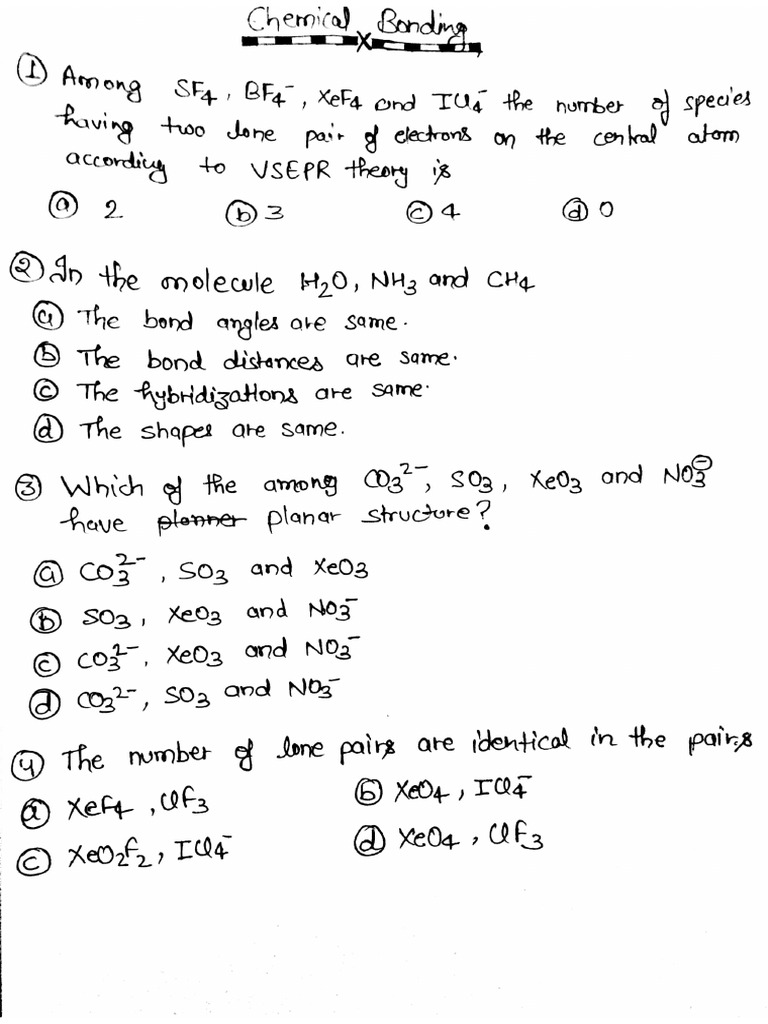 Chemical Bonding
① Among SF4, BF4⁻, XeF4 and ICl4⁻ the number of species
having two lone pair of electrons on the central atom
according to VSEPR theory is
ⓐ 2 ⓑ 3 ⓒ 4 ⓓ 0
② In the molecule H2O, NH3 and CH4
ⓐ The bond angles are same.
ⓑ The bond distances are same.
ⓒ The hybridizations are same.
ⓓ The shapes are same.
③ Which of the among CO3²⁻, SO3, XeO3 and NO3⊖
have planner planar structure?
ⓐ CO3²⁻, SO3 and XeO3
ⓑ SO3, XeO3 and NO3⁻
ⓒ CO3²⁻, XeO3 and NO3⁻
ⓓ CO3²⁻, SO3 and NO3⁻
④ The number of lone pairs are identical in the pairs
ⓐ XeF4, ClF3 ⓑ XeO4, ICl4⁻
ⓒ XeO2F2, ICl4⁻ ⓓ XeO4, ClF3